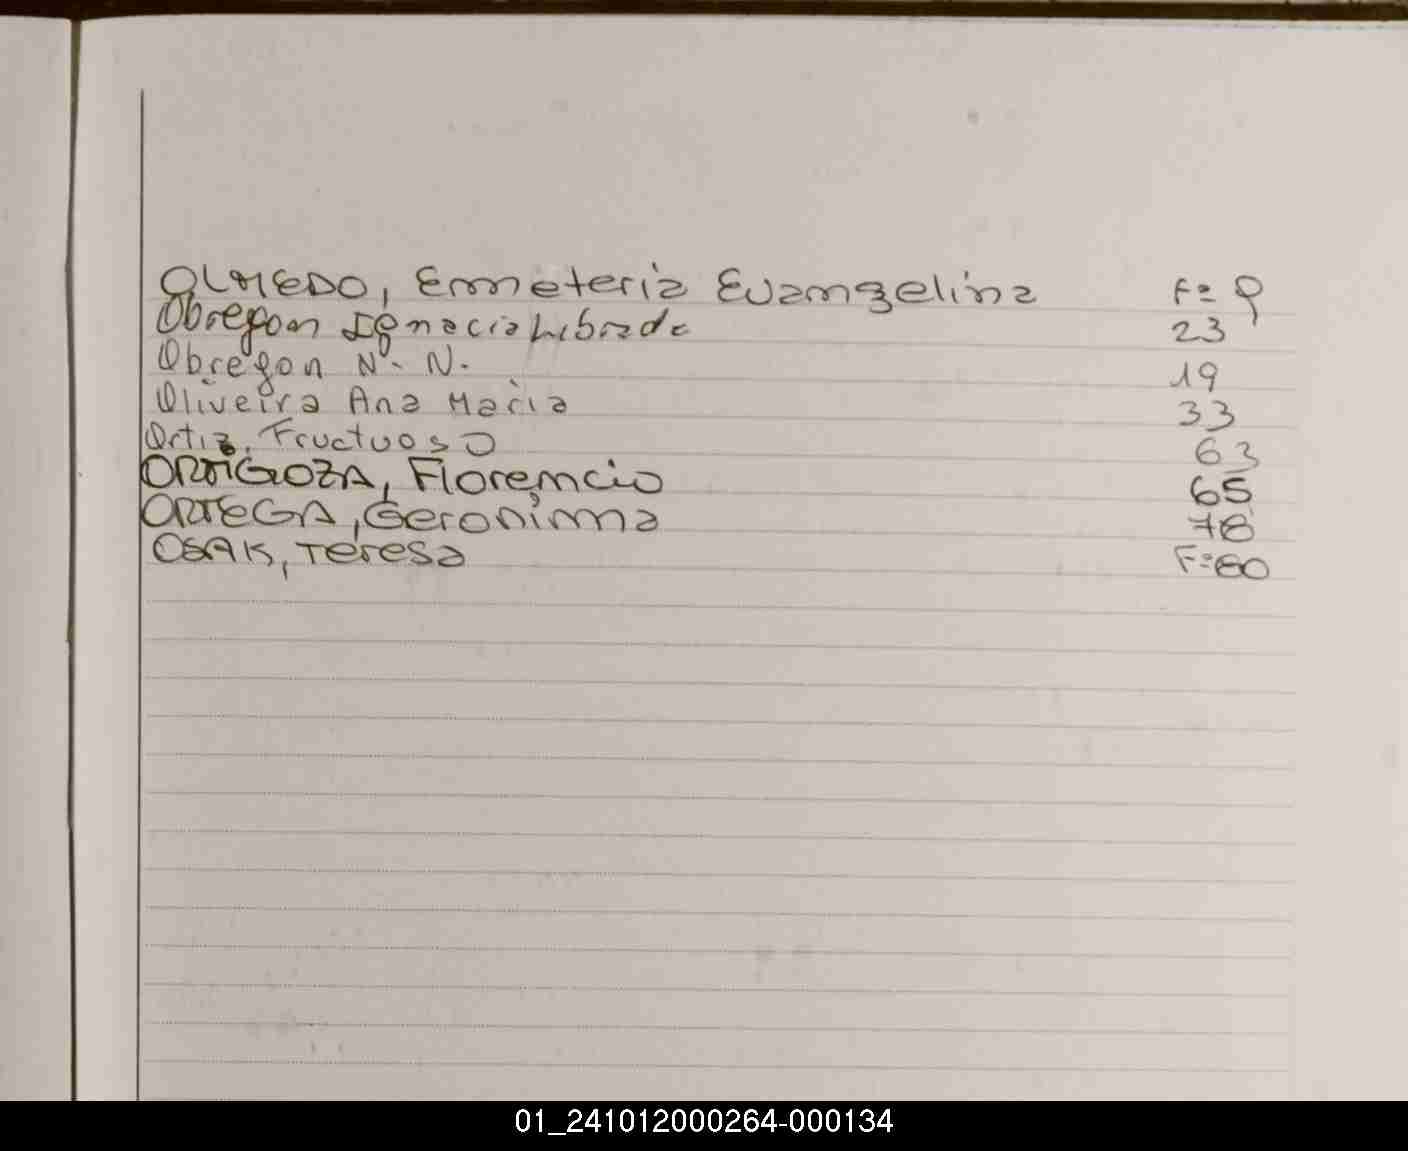 OLMEDO, Emeteria Evangelina F= 9
Obregon Ignacia Librada 23
Obregon N. N. 19
Oliveira Ana Maria 33
Ortiz, Fructuoso 63
ORTIGOZA, Florencio 65
ORTEGA, Geronima 78
OSAK, Teresa F=80
01_241012000264-000134